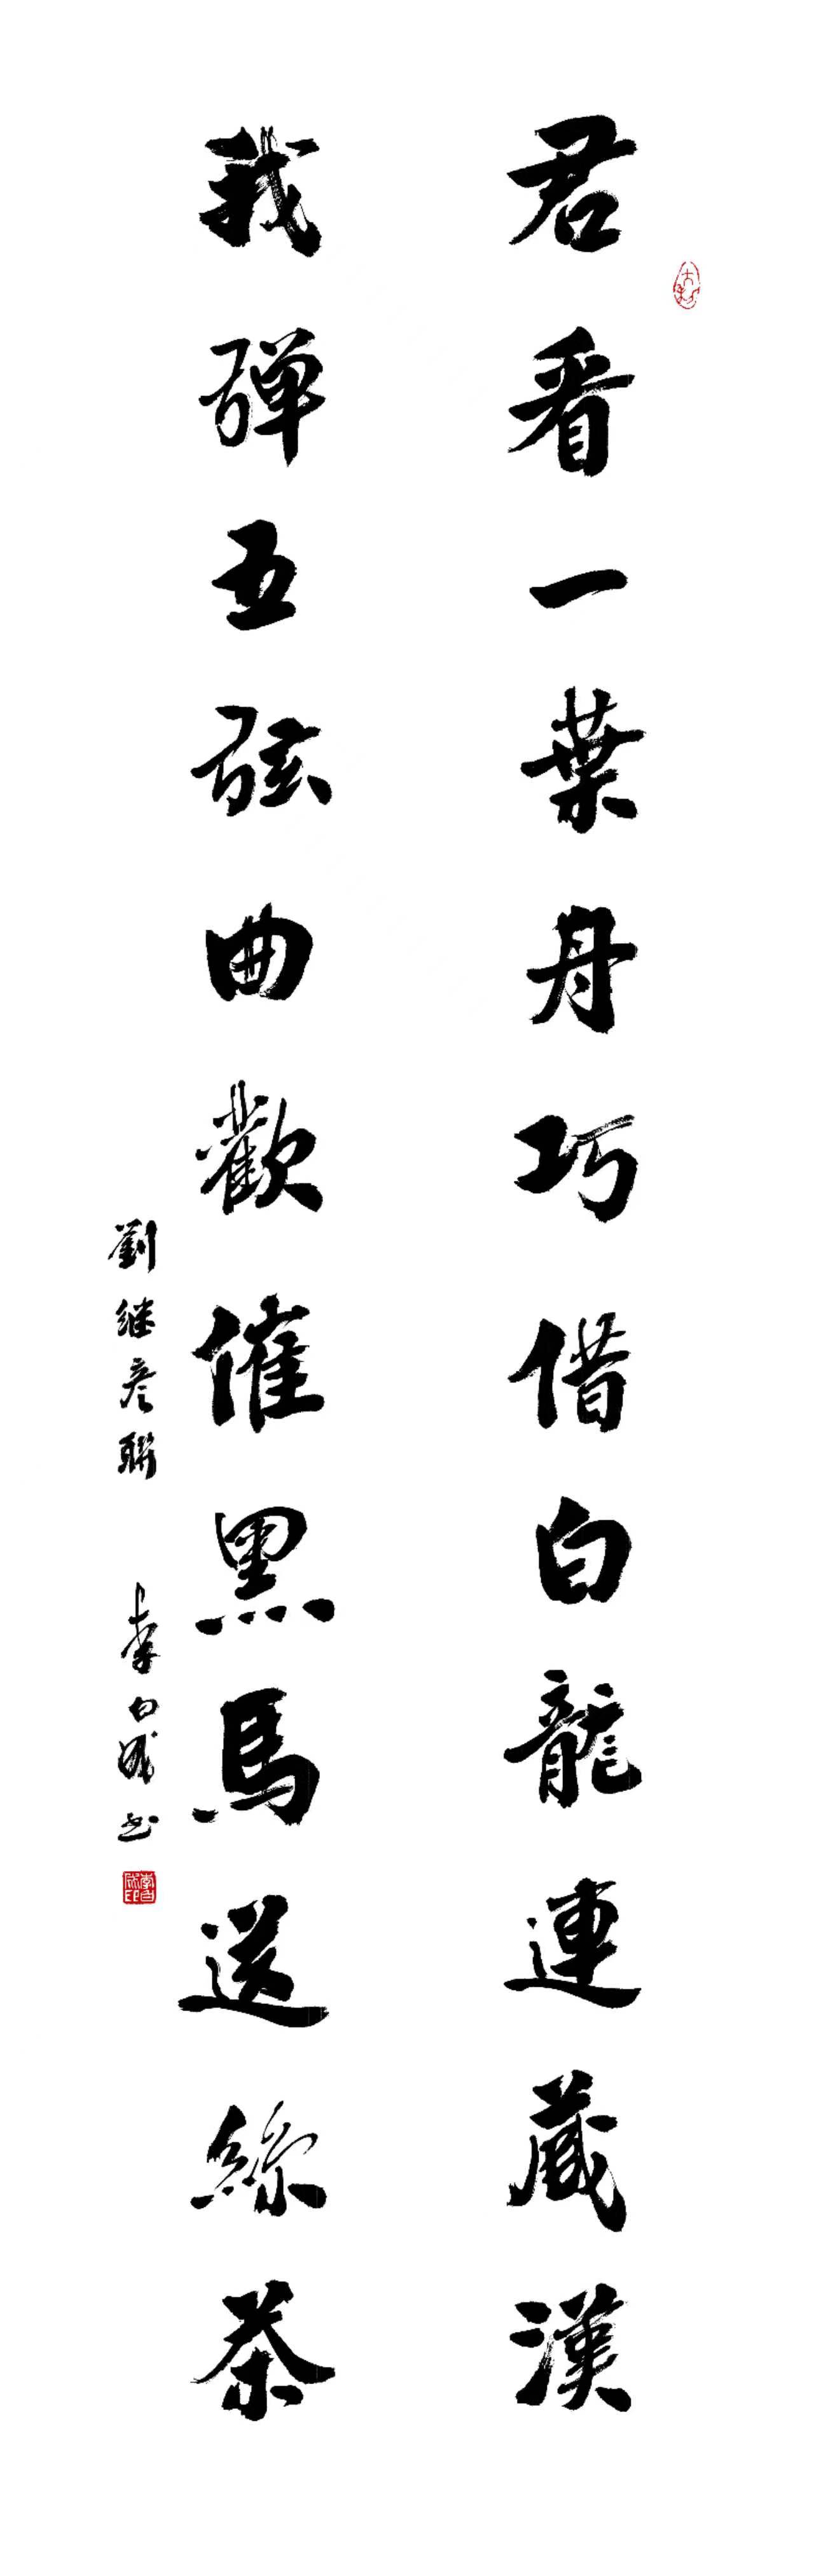 君看一葉舟巧借白龍連藏漢
我彈五弦曲歡催黑馬送絲茶
劉继彦聯
李白成书